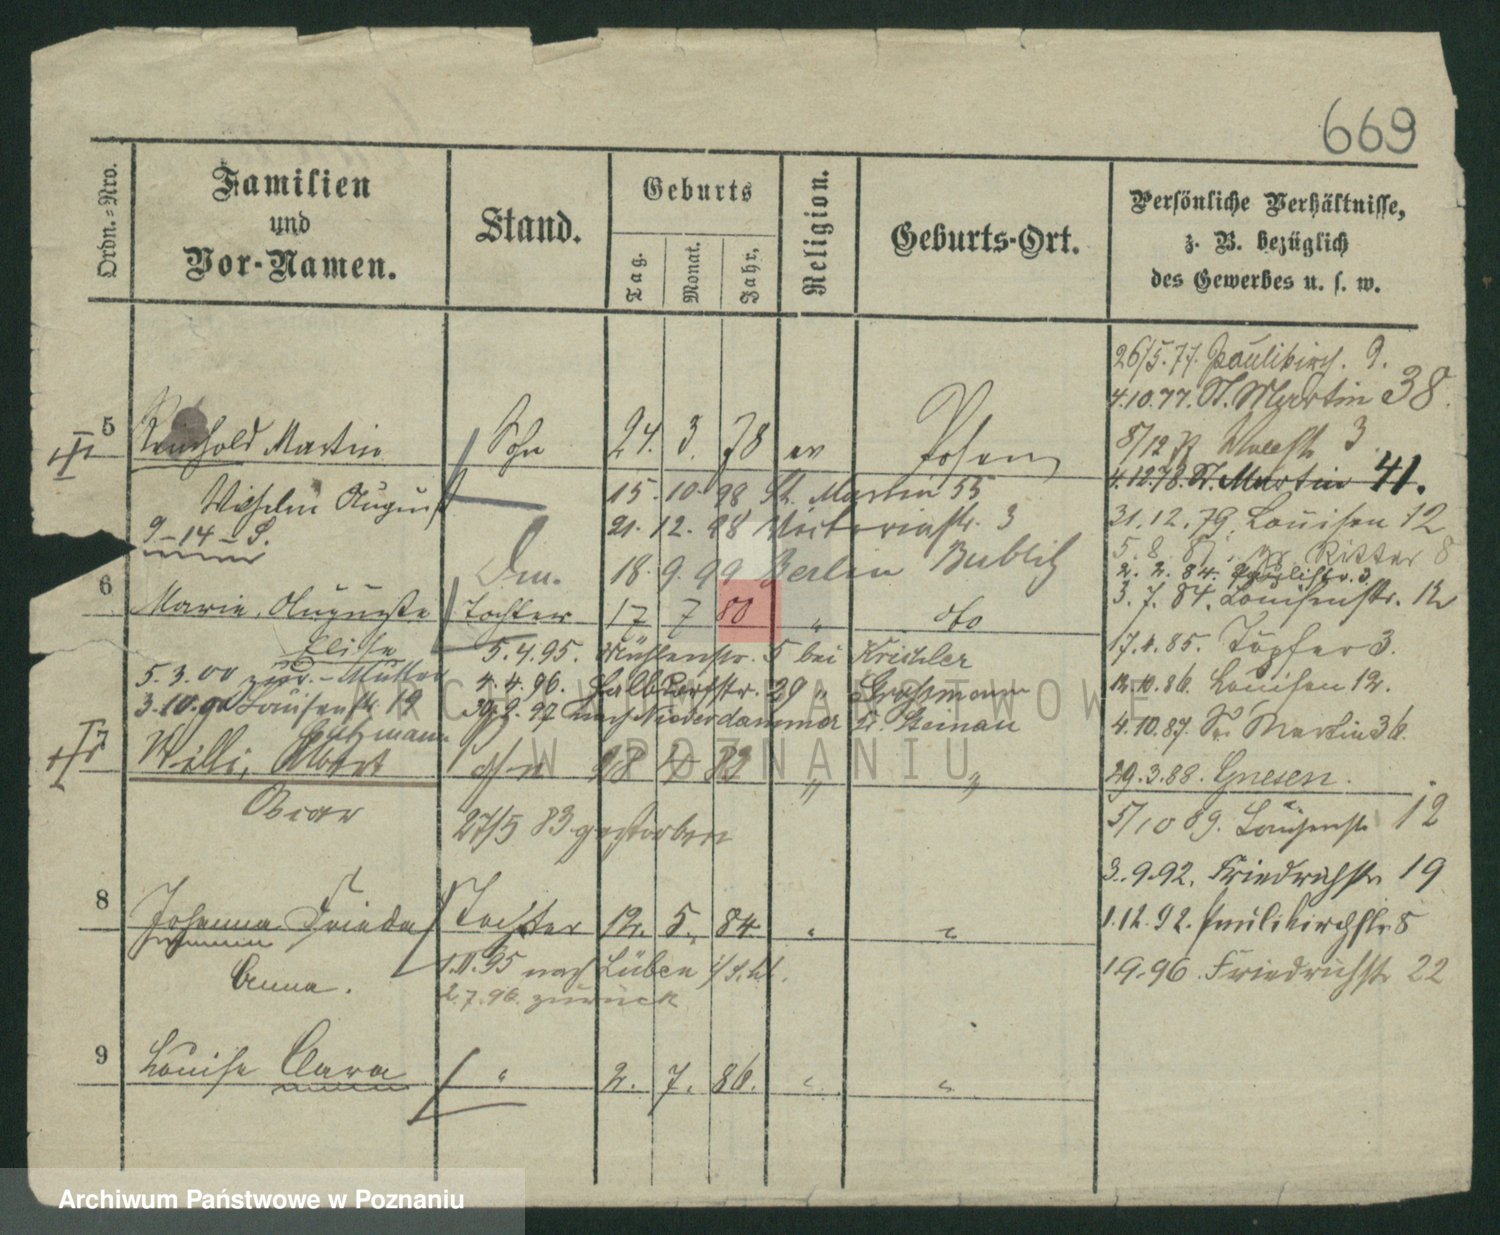 669
Ordn.-Nro.
Familien
und
Vor-Namen.
Stand.
Geburts
Tag.
Monat.
Jahr.
Religion.
Geburts-Ort.
Persönliche Verhältnisse,
z. B. bezüglich
des Gewerbes u. s. w.
26/5.77. Paulikirch. 9.
4.10.77. St. Martin 38.
5 Reinhold Martin Sohn 24. 3. 78 ev Posen
8/12 3
4.12.78. St. Martin 41.
Wilhelm August 15. 10. 98 St. Martin 55
21. 12. 98 Victoriastr. 3
31.12.79. Louisen 12
9-14-S.
18. 9. 99 Berlin Bublitz
5. 8. Ritter 8
2. 2. 84. Paulistr. 3.
3. 7. 84. Louisenstr. 12
6 Marie, Auguste Tochter 17 7 80 " dto
Elise
5.4.95. Mühlenstr. 5 bei Krischler
17.4.85. Töpfer 3.
5.3.00 zur. - Mutter
4.4.96. Halbdorfstr. 29 " Grossmann
12.10.86. Louisen 12.
3.10. Louisenstr. 19
30.9.97 nach Niederdammer Steinau
4.10.87. St. Martin 36.
7 Willi, Albert Sohn 18 4 83 " "
29.3.88. Gnesen.
Oscar
27/5 83 gestorben
5/10 89. Louisenstr 12
3.9.92. Friedrichstr 19
8 Johanna Frieda Tochter 12. 5. 84 " "
1.12.92. Paulikirchstr 8
Anna.
1.11.95 nach Lüben i/Schl.
2.7.96. zurück
1.9.96. Friedrichstr 22
9 Louise Clara " 2. 7. 86. " "
ARCHIWUM PAŃSTWOWE
W POZNANIU
Archiwum Państwowe w Poznaniu